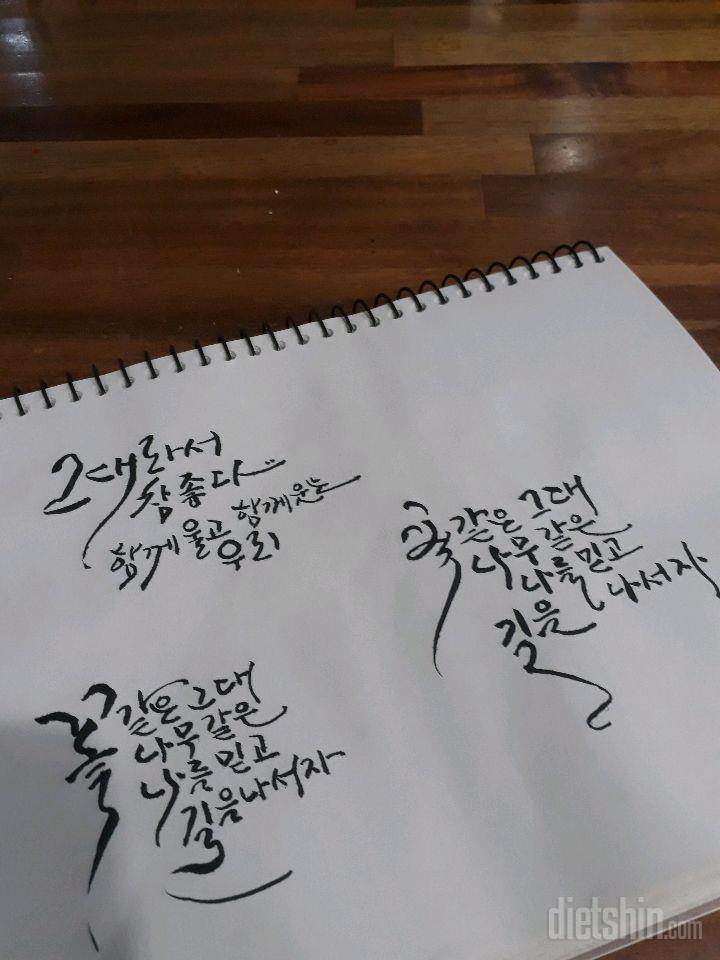 그대라서
참좋다..
함께울고 함께웃는
우리
꽃같은 그대
나무같은
나를믿고
길을 나서자
꽃같은 그대
나무같은
나를믿고
길을나서자
dietshin.com